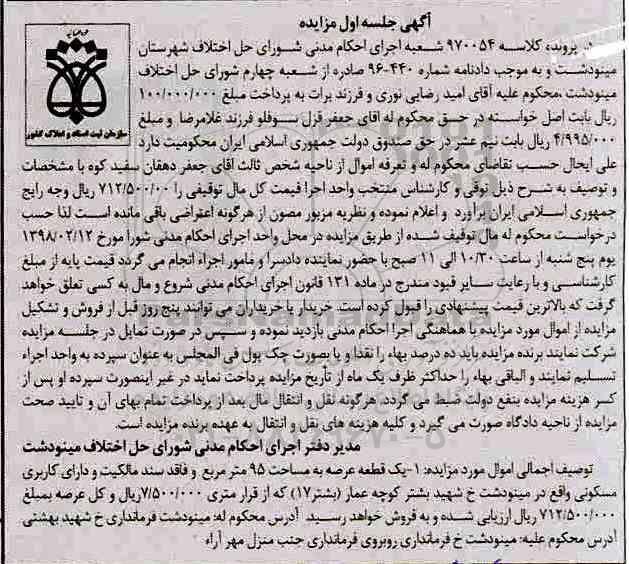 آگهی جلسه اول مزایده
در پرونده کلاسه ۹۷۰۰۵۴ شعبه اجرای احکام مدنی شورای حل اختلاف شهرستان
مینودشت و به موجب دادنامه شماره ۴۴۰-۹۶ صادره از شعبه چهارم شورای حل اختلاف
مینودشت ،محکوم علیه آقای امید رضایی نوری و فرزند برات به پرداخت مبلغ ۱۰۰/۰۰۰/۰۰۰
ریال بابت اصل خواسته در حق محکوم له اقای جعفر قزل سوفلو فرزند غلامرضا و مبلغ
۴/۹۹۵/۰۰۰ ریال بابت نیم عشر در حق صندوق دولت جمهوری اسلامی ایران محکومیت دارد
علی ایحال حسب تقاضای محکوم له و تعرفه اموال از ناحیه شخص ثالث اقای جعفر دهقان سفید کوه با مشخصات
و توصیف به شرح ذیل توقی و کارشناس منتخب واحد اجرا قیمت کل مال توقیفی را ۷۱۲/۵۰۰/۰۰ ریال وجه رایج
جمهوری اسلامی ایران براورد و اعلام نموده و نظریه مزبور مصون از هرگونه اعتراضی باقی مانده است لذا حسب
درخواست محکوم له مال توقیف شده از طریق مزایده در محل واحد اجرای احکام مدنی شورا مورخ ۱۳۹۸/۰۲/۱۲
یوم پنج شنبه از ساعت ۱۰/۳۰ الی ۱۱ صبح با حضور نماینده دادسرا و مامور اجراء انجام می گردد قیمت پایه از مبلغ
کارشناسی و با رعایت سایر قیود مندرج در ماده ۱۳۱ قانون اجرای احکام مدنی شروع و مال به کسی تعلق خواهد
گرفت که بالاترین قیمت پیشنهادی را قبول کرده است. خریدار یا خریداران می توانند پنج روز قبل از فروش و تشکیل
مزایده از اموال مورد مزایده با هماهنگی اجرا احکام مدنی بازدید نموده و سپس در صورت تمایل در جلسه مزایده
شرکت نمایند برنده مزایده باید ده درصد بهاء را نقدا و یا بصورت چک پول فی المجلس به عنوان سپرده به واحد اجراء
تسلیم نمایند و الباقی بهاء را حداکثر ظرف یک ماه از تأریخ مزایده پرداخت نماید در غیر اینصورت سپرده او پس از
کسر هزینه مزایده بنفع دولت ضبط می گردد. هرگونه نقل و انتقال مال بعد از پرداخت تمام بهای آن و تایید صحت
مزایده از ناحیه دادگاه صورت می گیرد و کلیه هزینه های نقل و انتقال به عهده برنده مزایده است.
مدیر دفتر اجرای احکام مدنی شورای حل اختلاف مینودشت
توصیف اجمالی اموال مورد مزایده: ۱-یک قطعه عرصه به مساحت ۹۵ متر مربع و فاقد سند مالکیت و دارای کاربری
مسکونی واقع در مینودشت خ شهید بشتر کوچه عمار (بشتر۱۷) که از قرار متری ۷/۵۰۰/۰۰۰ریال و کل عرصه بمبلغ
۷۱۲/۵۰۰/۰۰۰ ریال ارزیابی شده و به فروش خواهد رسید. آدرس محکوم له: مینودشت فرمانداری خ شهید بهشتی
آدرس محکوم علیه: مینودشت خ فرمانداری روبروی فرمانداری جنب منزل مهر آراء
سازمان ثبت اسناد و املاک کشور